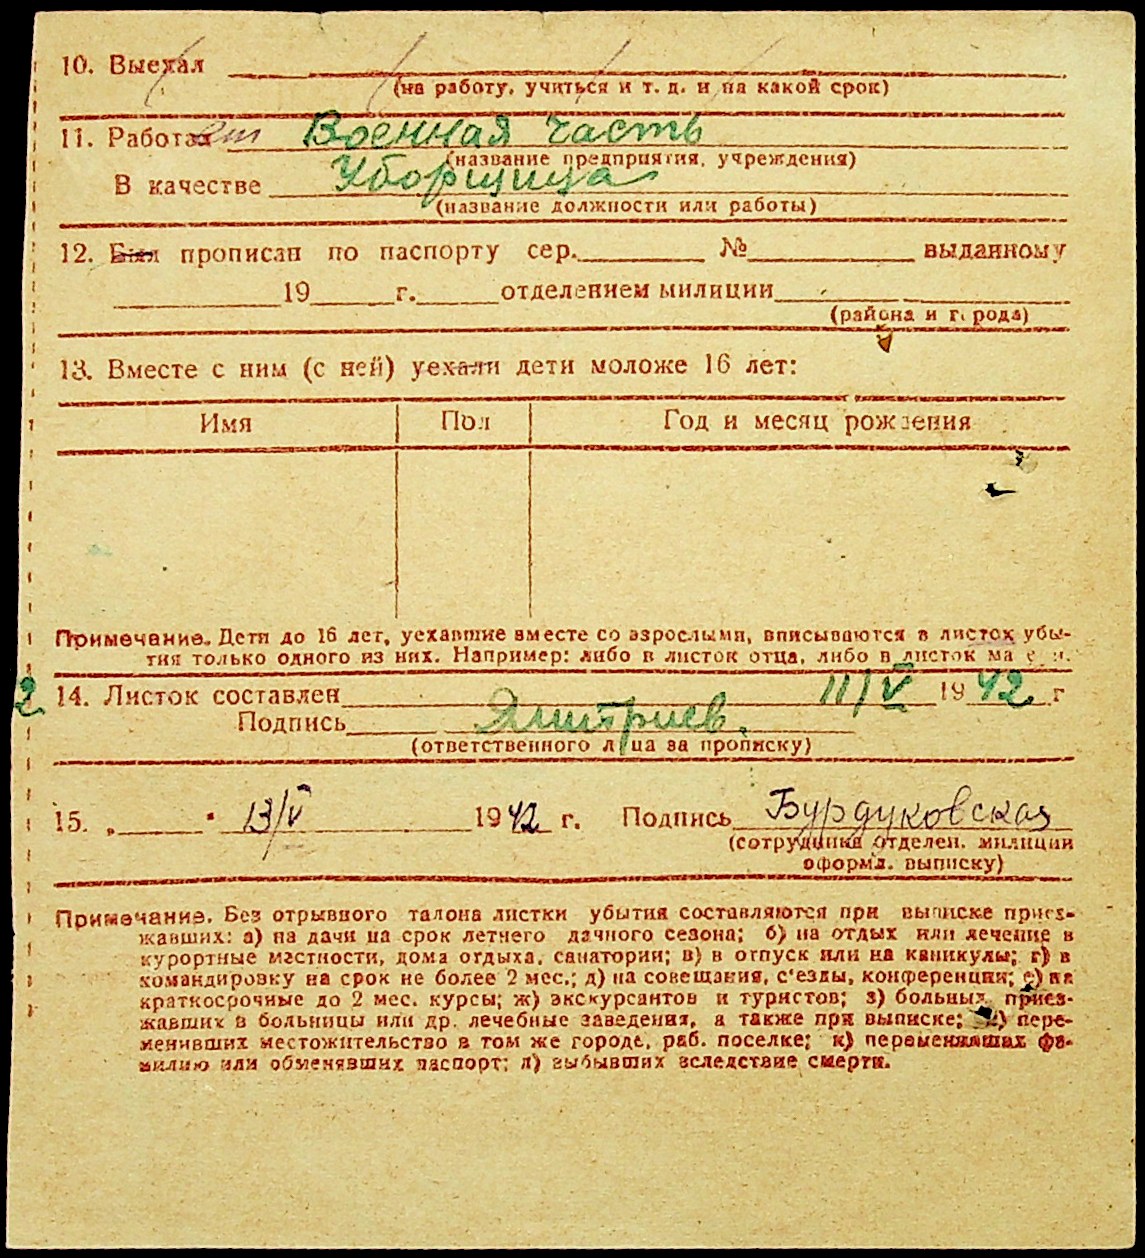 10. Выехал
(на работу, учиться и т. д. и на какой срок)
11. Работает Военная часть
(название предприятия, учреждения)
В качестве Уборщица
(название должности или работы)
12. Был прописан по паспорту сер. № выданному
19 г. отделением милиции
(района и города)
13. Вместе с ним (с ней) уехали дети моложе 16 лет:
Имя Пол Год и месяц рождения
Примечание. Дети до 16 лет, уехавшие вместе со взрослыми, вписываются в листок убы-
тия только одного из них. Например: либо в листок отца, либо в листок матери.
2 14. Листок составлен 11/V 1942 г
Подпись Дмитриев.
(ответственного лица за прописку)
15. „ " 13/V 1942 г. Подпись Бурдуковская
(сотрудника отделен. милиции
оформл. выписку)
Примечание. Без отрывного талона листки убытия составляются при выписке приез-
жавших: а) на дачи на срок летнего дачного сезона; б) на отдых или лечение в
курортные местности, дома отдыха, санатории; в) в отпуск или на каникулы; г) в
командировку на срок не более 2 мес.; д) на совещания, с'езды, конференции; е) на
краткосрочные до 2 мес. курсы; ж) экскурсантов и туристов; з) больных, приез-
жавших в больницы или др. лечебные заведения, а также при выписке; и) пере-
менивших местожительство в том же городе, раб. поселке; к) переменивших фа-
милию или обменявших паспорт; л) выбывших вследствие смерти.